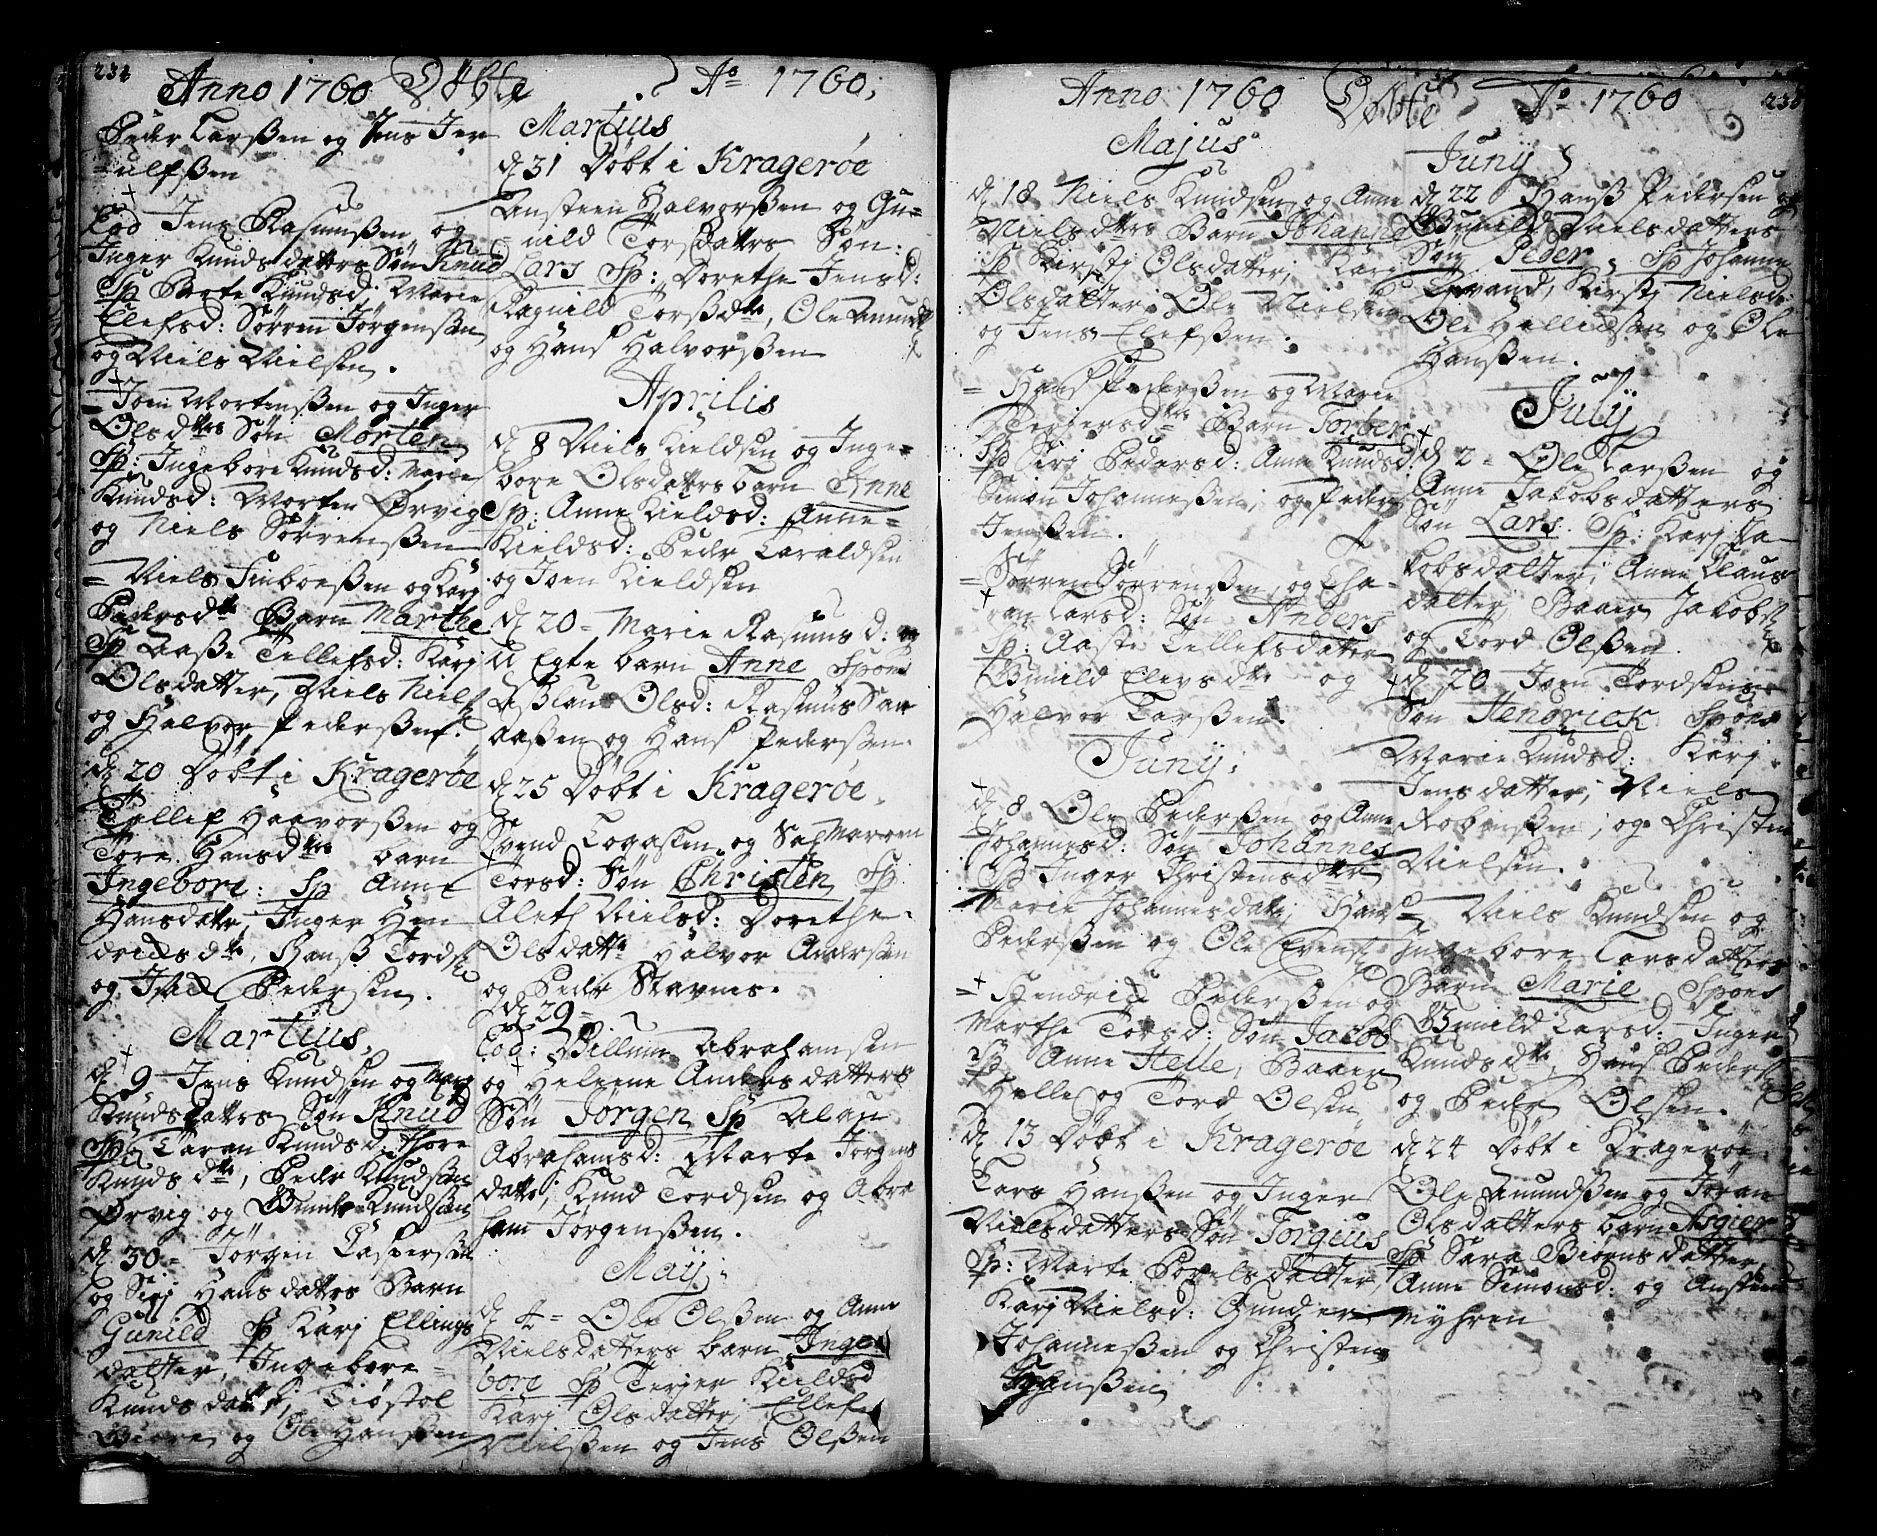 234
Anno 1760 Døbte Aº 1760;
Peder Larßen og Jens Jer
ulfßen
Eod Jens Rasmusßen og
Inger Knudsdattrs Søn Knud
Sp Berte Knudsd; Marie
Ellefsd: Sørren Jørgensßen
og Niels Nielsen.
Joen Mortensßen og Inger
Olsdtrs Søn Morten
Sp: Ingebore Knudsd: Marie
Knudsd: Morten Ørvig
og Niels Sørrensßen
= Niels Simboeßen og Karj
Pedersdtr Barn Marthe
Sp Aaße Tellefsd: Karj
Olsdatter, Niels Niels
og Halvor Pedersßen.
d 20 Døbt i Kragerøe
Tellef Haavorßen og
Tore Hansdtrs barn
Ingebore: Sp Anne
Hansdattr, Inger Hen
drichsdtr, Hanß Tords
og Isach Pedersen.
Martius
d 9 Jens Knudsen og Marj
Knudsdattrs Søn Knud
Sp: Taran Knudsd, Thore
Knudsdtr, Peder Knudsßen
Ørvig og Knudsßen
d 30 = Jørgen Casperßen
og Siri Hansdattrs Barn
Gunild Sp Karj Ellings
datter, Ingebore
Knudsdattr; Tiøstol
og Ole Hanßen
Martius
d 31 Døbt i Kragerøe
Ansteen Halvorßen og Gu=
=nild Torsdattrs Søn:
Lars Sp: Dorethe Jensd:
Ragnild Torßdtr, Ole Amunds
og Hans Halvorßen
Aprilis
d 8 Niels Kieldsen og Inge=
bore Olsdattrs barn Anne
Sp: Anne Kieldsd: Anne=
Kieldsd: Peder Taraldsen
og Joen Kieldsen
d 20 = Marie Rasmusd: og
U Egte barn Anne Spons
Aßlau Olsd: Rasmus San
aaßen og Hans Pederßen.
d 25 Døbt i Kragerøe.
Svend Logasten og Sal Marren
Torsd: Søn Christen Sp
Aleth Nielsd: Dorethe
Olsdattr Halvor Andersßen
og Peder Stavnes.
d 29 =
Eod: Willum Abrahamsen
og Helene Andersdatters
Søn Jørgen Sp Alan
Abrahamsd: Marte Jørgens
dattr; Knud Tordsen og Abra
ham Jørgensßen.
Maij;
d 4 = Ole Olßen og Anne
Nielsdatters barn Inge
bore Sp Terjer Kieldsd
Karj Olsdatter; Ellef
Nielßen og Jens Olßen
Anno 1760 Døbte Aº 1760
Majus
d 18 Niels Knudsen og Anne
Nielsdtrs Barn Johanne
Sp Kirstj Olsdatter; Karj
Olsdatter; Ole Nielsen
og Jens Elefßen.
= Hans Pederßen og Marie
Terjersdtrs Barn Torber
Sp Siri Pedersd: Anne Knudsd:
Simon Johannesßen; og Peder
Jensßen.
= Sørren Sørrensßen og Tha=
ran Larsd: Søn Anders
Sp: Aaste Tellefsdater
Gunild Elersdtr og
Halvor Larßen.
Junij;
d 8 Ole Pederßen og Anne
Johannesd: Søn Johannes
Sp Inger Christensdtr
Marie Johannesdatr; Hans
Pedersßen og Ole Evens
= Hendrich Pederßen og
Marthe Torsd: Søn Jacob
Sp Anne Helle, Baaer
Helle og Tord Olsen
d 13 Døbt i Kragerøe
Lars Hanßen og Inger
Nielsdatters Søn Torgius
Sp: Marte Povelsdatter,
Karj Nielsd: Gunder
Johannesßen og Christen
Hanßen
Junij
d 22 Hanß Pedersen og
Gunild Nielsdatters
Søn Peder, Sp Johanne
Tevand, Kirstj Nielsd:
Ole Helließen og Ole
Hanßen.
Julij
d 2 = Ole Larßen og
Anne Jakobsdatters
Søn Lars. Sp: Karj Ja
kobsdatter; Anne Claus
datter, Baaer Jakobs
og Tord Olßen.
d 20 Joen Tordsens
Søn Hendrick Spons
Marie Knudsd: Karj
Jensdatter; Niels
Robenßen; og Christen
Nielsen.
= Niels Knudsen og
Ingebore Larsdatters
Barn Marie Spons
Gunild Larsd: Inger
Knudsdtr, Hans Peders
og Peder Olsen.
d 24 Døbt i Kragerøe
Ole Amundßen og Jøran
Olsdatters barn Asgier
Sp Sara Biørnsdatter,
Anne Simonsd: og Ansteen
Myhren